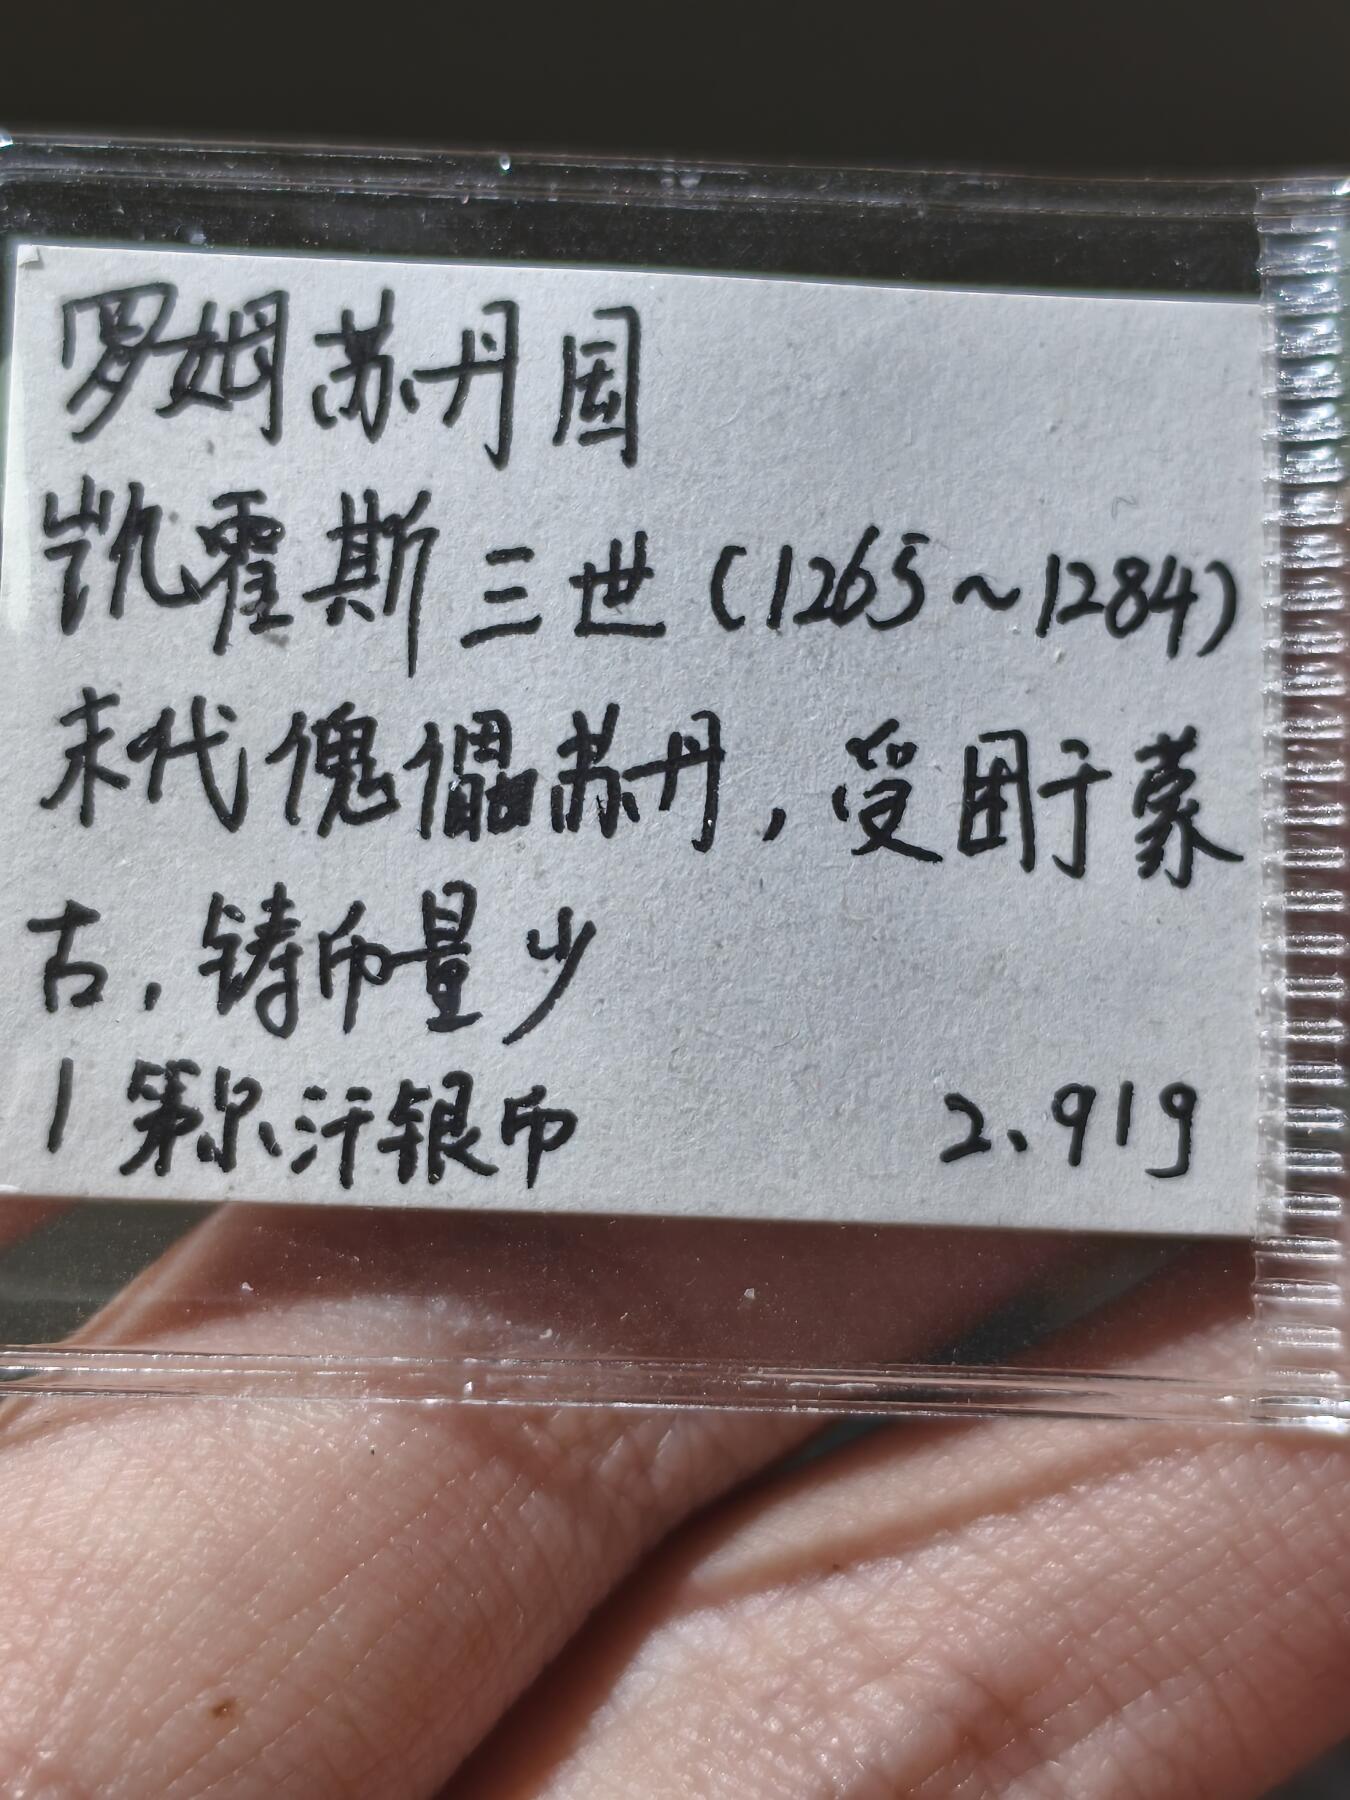 罗姆苏丹国
凯霍斯三世(1265~1284)
末代傀儡苏丹,受困于蒙
古,铸币量少
1第尔汗银币 2.91g